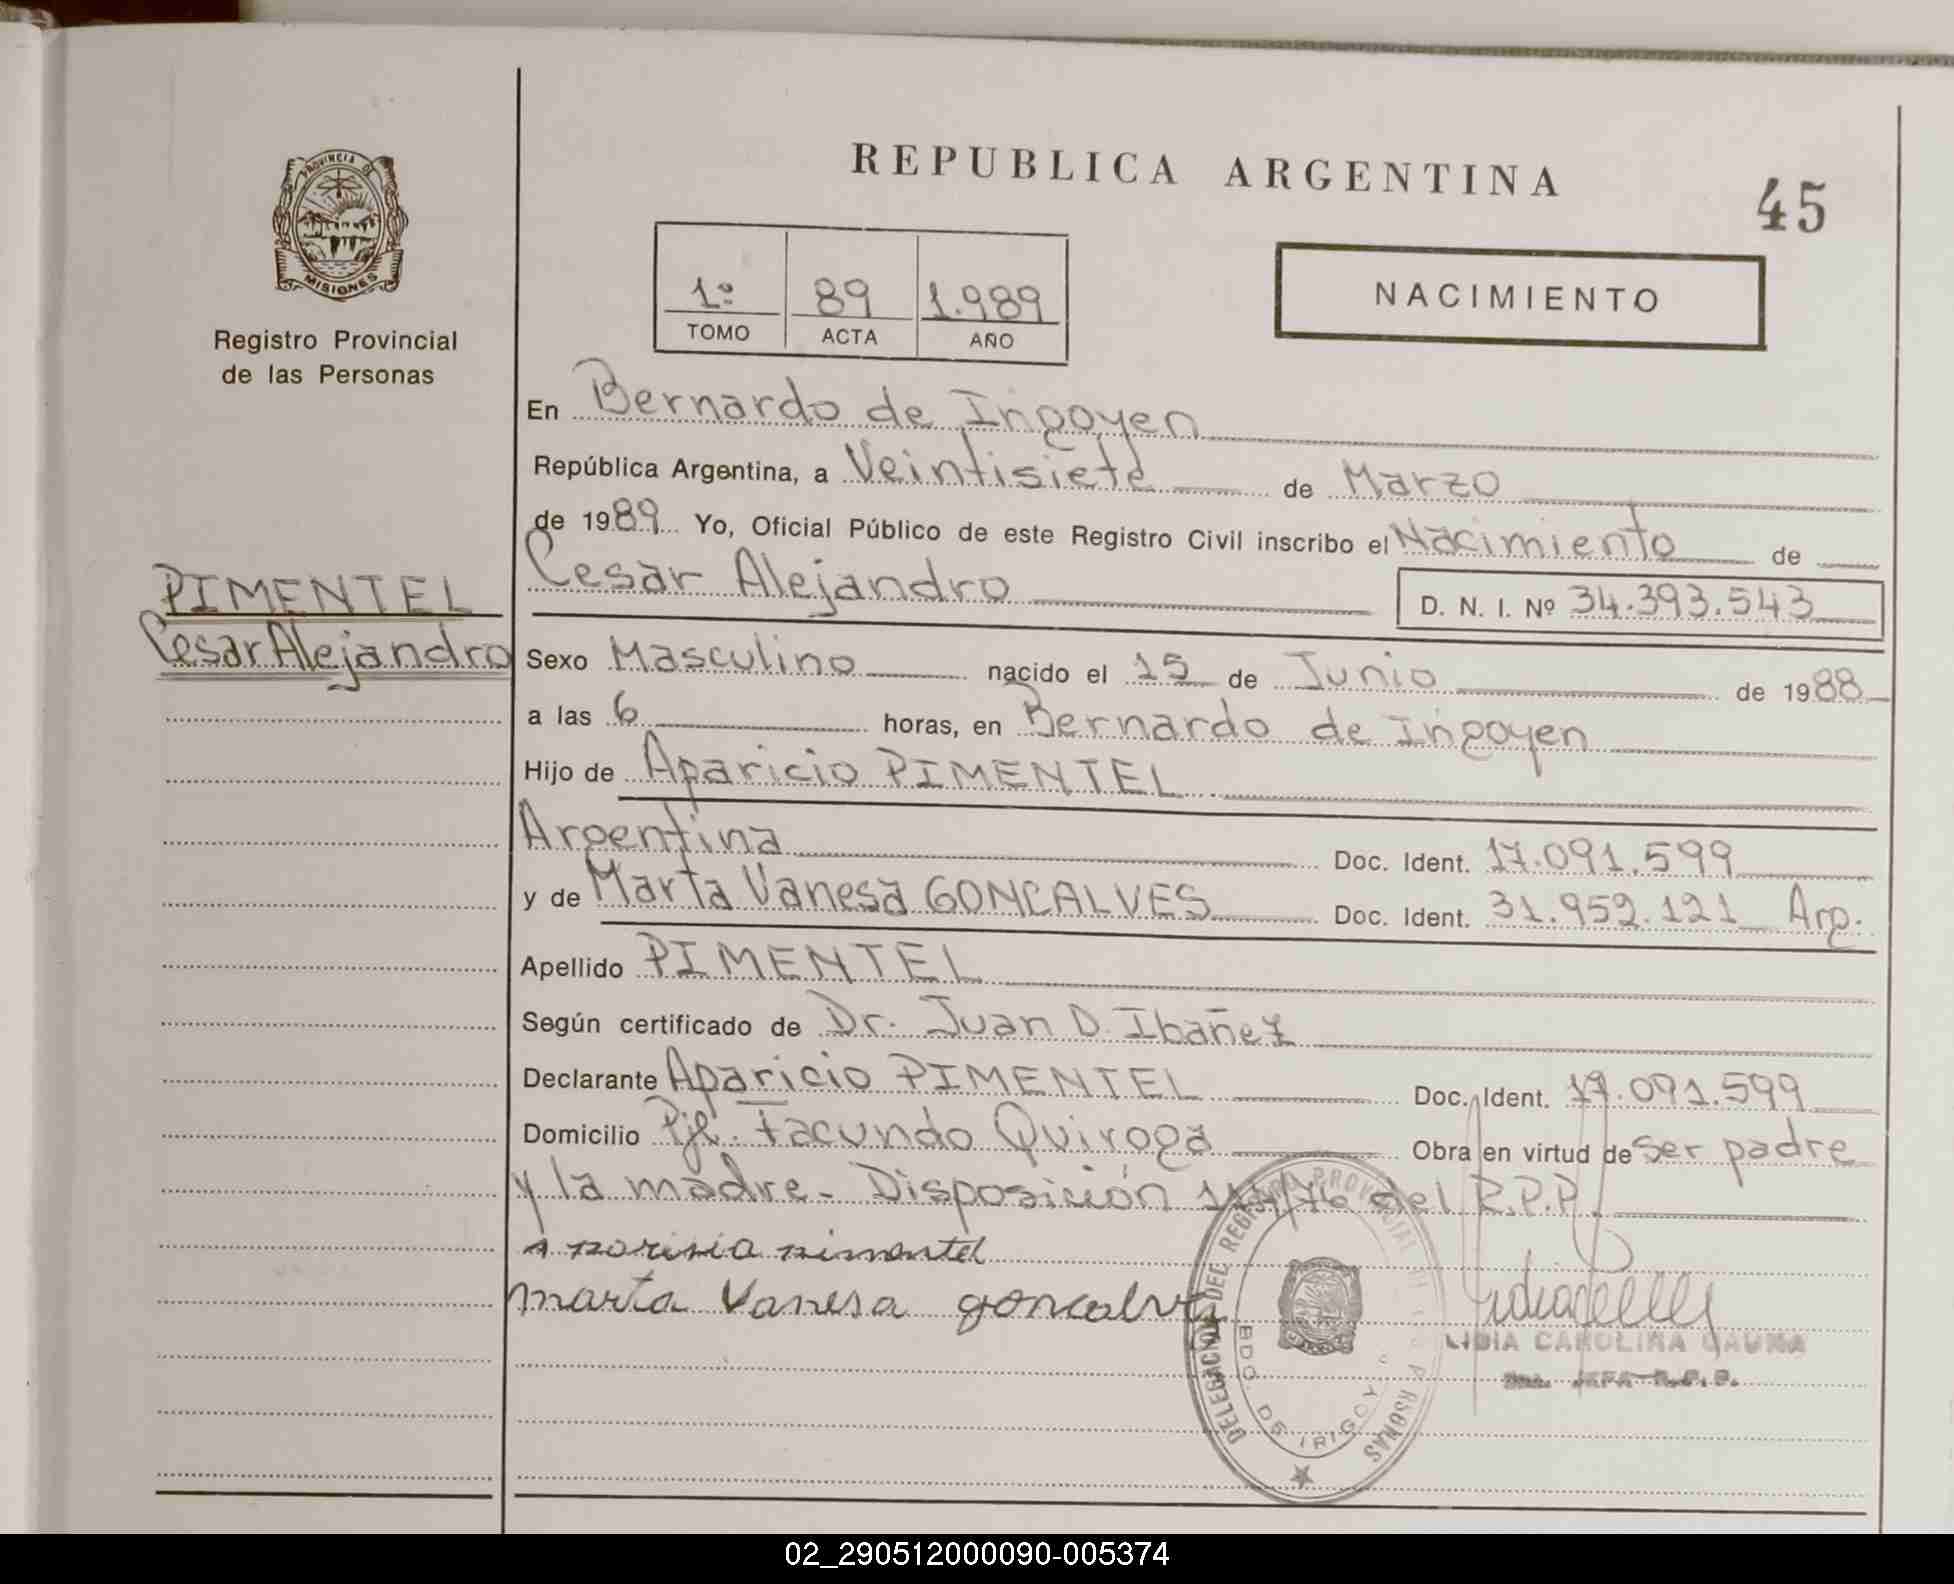 PROVINCIA DE
MISIONES
Registro Provincial
de las Personas
PIMENTEL
Cesar Alejandro
REPUBLICA ARGENTINA
45
1º 89 1.989
TOMO ACTA AÑO
NACIMIENTO
En Bernardo de Irigoyen
República Argentina, a Veintisiete de Marzo
de 1989 Yo, Oficial Público de este Registro Civil inscribo el Nacimiento de
Cesar Alejandro D. N. I. Nº 34.393.543
Sexo Masculino nacido el 15 de Junio de 1988
a las 6 horas, en Bernardo de Irigoyen
Hijo de Aparicio PIMENTEL
Argentina Doc. Ident. 17.091.599
y de Marta Vanesa GONCALVES Doc. Ident. 31.952.121 Arg.
Apellido PIMENTEL
Según certificado de Dr. Juan D. Ibañez
Declarante Aparicio PIMENTEL Doc. Ident. 17.091.599
Domicilio Pje. Facundo Quiroga Obra en virtud de ser padre
y la madre - Disposición /76 del R.P.P.
pimentel
marta Vanesa goncalves
DELEGACION DEL REGISTRO PROVINCIAL DE LAS PERSONAS
BDO. DE IRIGOYEN
LIDIA CAROLINA GAUNA
JEFA R.P.P.
02_290512000090-005374